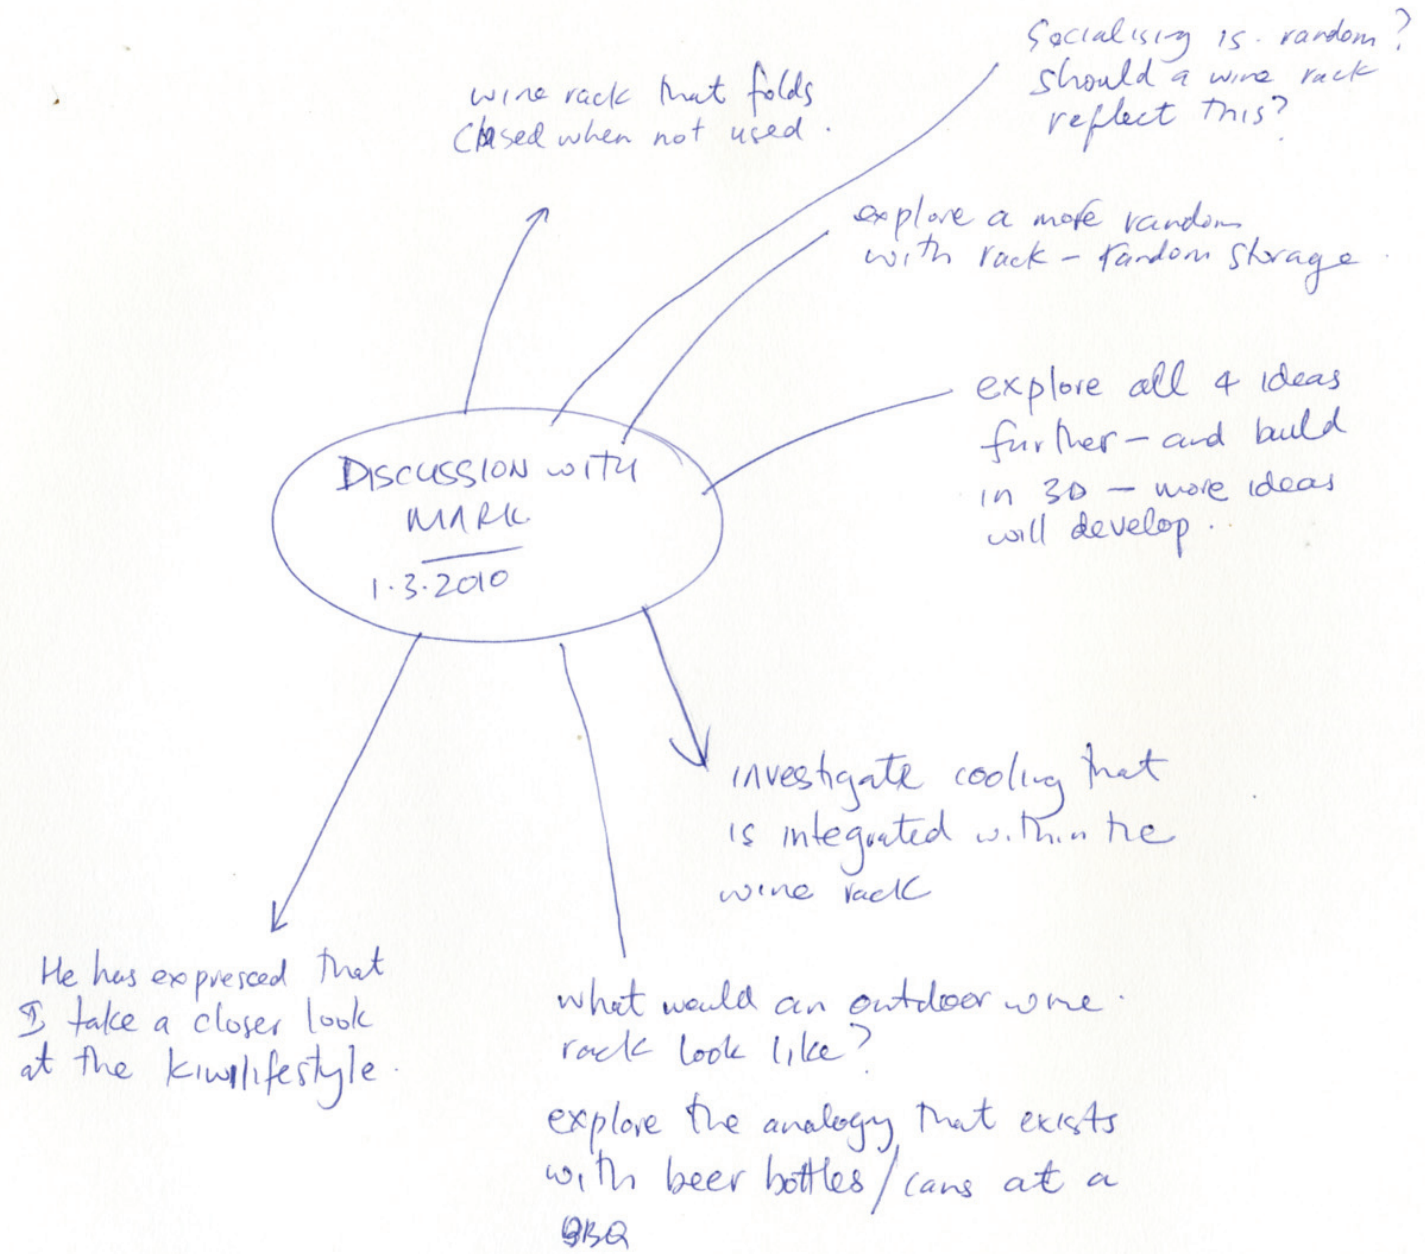 Socialising is random?
should a wine rack
reflect this?
wine rack that folds
closed when not used.
explore a more random
with rack - random storage
explore all 4 ideas
further - and build
in 3D - more ideas
will develop.
DISCUSSION WITH
MARK
1.3.2010
investigate cooling that
is integrated within the
wine rack
He has expressed that
I take a closer look
at the kiwilifestyle.
what would an outdoor wine
rack look like?
explore the analogy that exists
with beer bottles/cans at a
BBQ